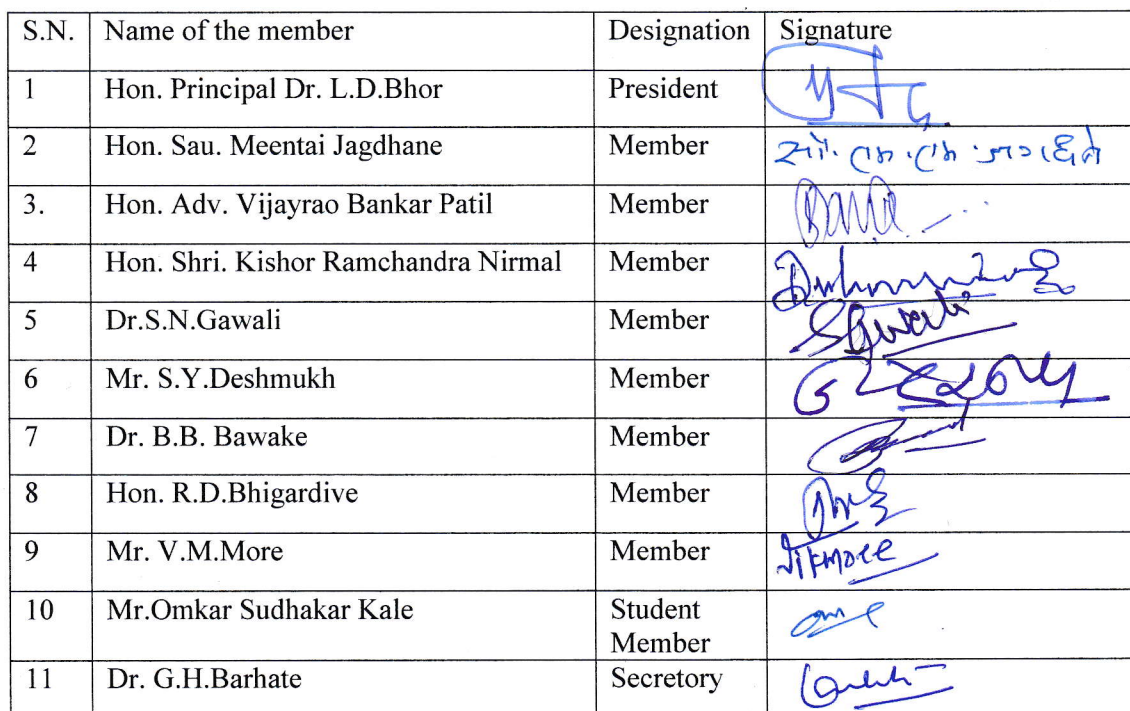 S.N. Name of the member Designation Signature
1 Hon. Principal Dr. L.D.Bhor President
2 Hon. Sau. Meentai Jagdhane Member सौ. एम.एम.जगधने
3. Hon. Adv. Vijayrao Bankar Patil Member
4 Hon. Shri. Kishor Ramchandra Nirmal Member
5 Dr.S.N.Gawali Member SGawali
6 Mr. S.Y.Deshmukh Member
7 Dr. B.B. Bawake Member
8 Hon. R.D.Bhigardive Member
9 Mr. V.M.More Member
10 Mr.Omkar Sudhakar Kale Student
Member
11 Dr. G.H.Barhate Secretory